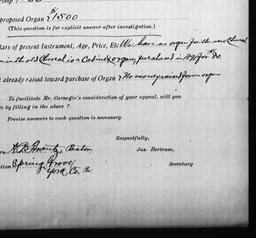 proposed Organ $1500
(This question is for explicit answer after investigation.)
lars of present Instrument, Age, Price, Etc We have no organ for the new Church
in the old Church is a Cabinet organ, purchased in
t already raised toward purchase of Organ No money raised for organ
To facilitate Mr. Carnegie's consideration of your appeal, will you
te by filling in the above ?
Precise answers to each question is necessary
Respectfully,
Jas. Bertram,
Secretary
Pastor
Spring Grove
York, Co. Pa.